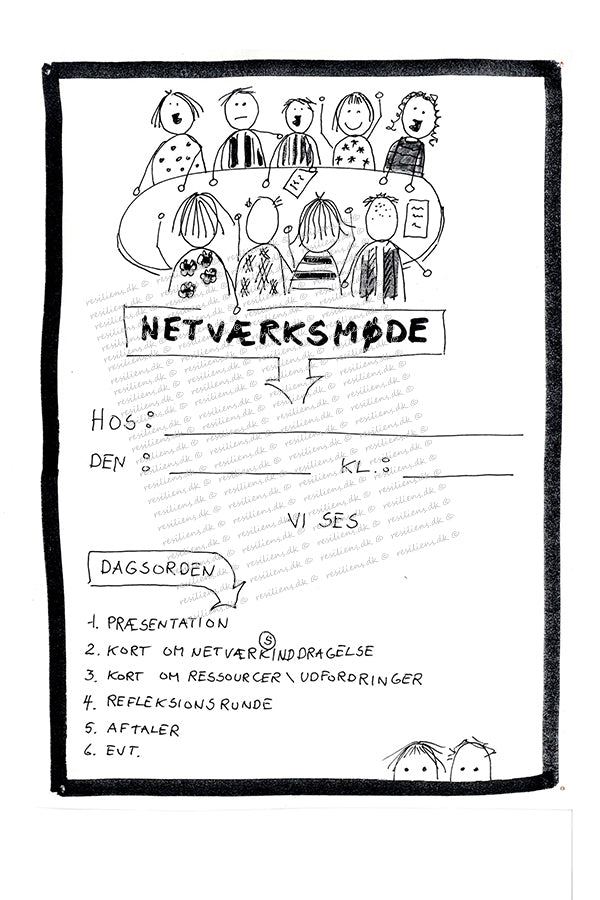 NETVÆRKSMØDE
HOS:
DEN: KL.:
VI SES
DAGSORDEN
1. PRÆSENTATION
2. KORT OM NETVÆRK(S)INDDRAGELSE
3. KORT OM RESSOURCER \ UDFORDRINGER
4. REFLEKSIONSRUNDE
5. AFTALER
6. EVT.
resiliens.dk ©